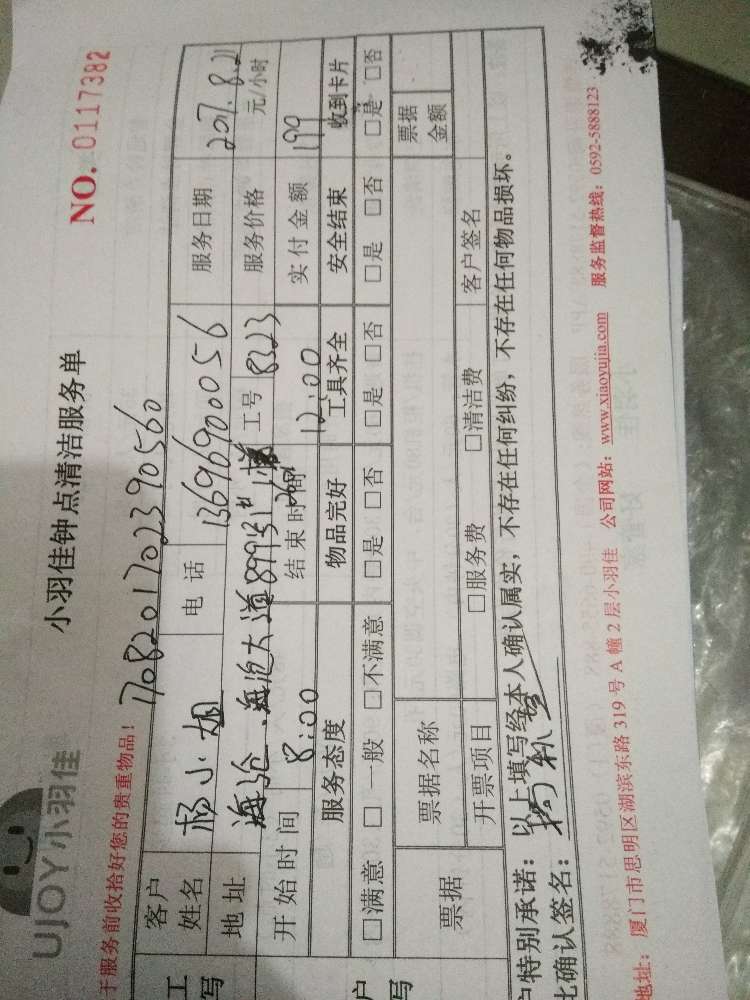 UJOY小羽佳
小羽佳钟点清洁服务单
NO. 0117382
于服务前收拾好您的贵重物品！
1708201702390560
客户姓名 杨小姐 电话 13696900056 服务日期 2017.8.21
地址 海沧.海沧大道899号 服务价格 元/小时
开始时间 8:00 结束时间 12:00 工号 8223 实付金额 199
服务态度 物品完好 工具齐全 安全结束 收到卡片
□满意 □一般 □不满意 □是 □否 □是 □否 □是 □否 □是 □否
票据 票据名称 票据金额
开票项目 □服务费 □清洁费 客户签名
户特别承诺：以上填写经本人确认属实，不存在任何纠纷，不存在任何物品损坏。
比确认签名：
地址：厦门市思明区湖滨东路 319 号 A 幢 2 层小羽佳 公司网站：www.xiaoyujia.com 服务监督热线：0592-5888123
工
写
户
写